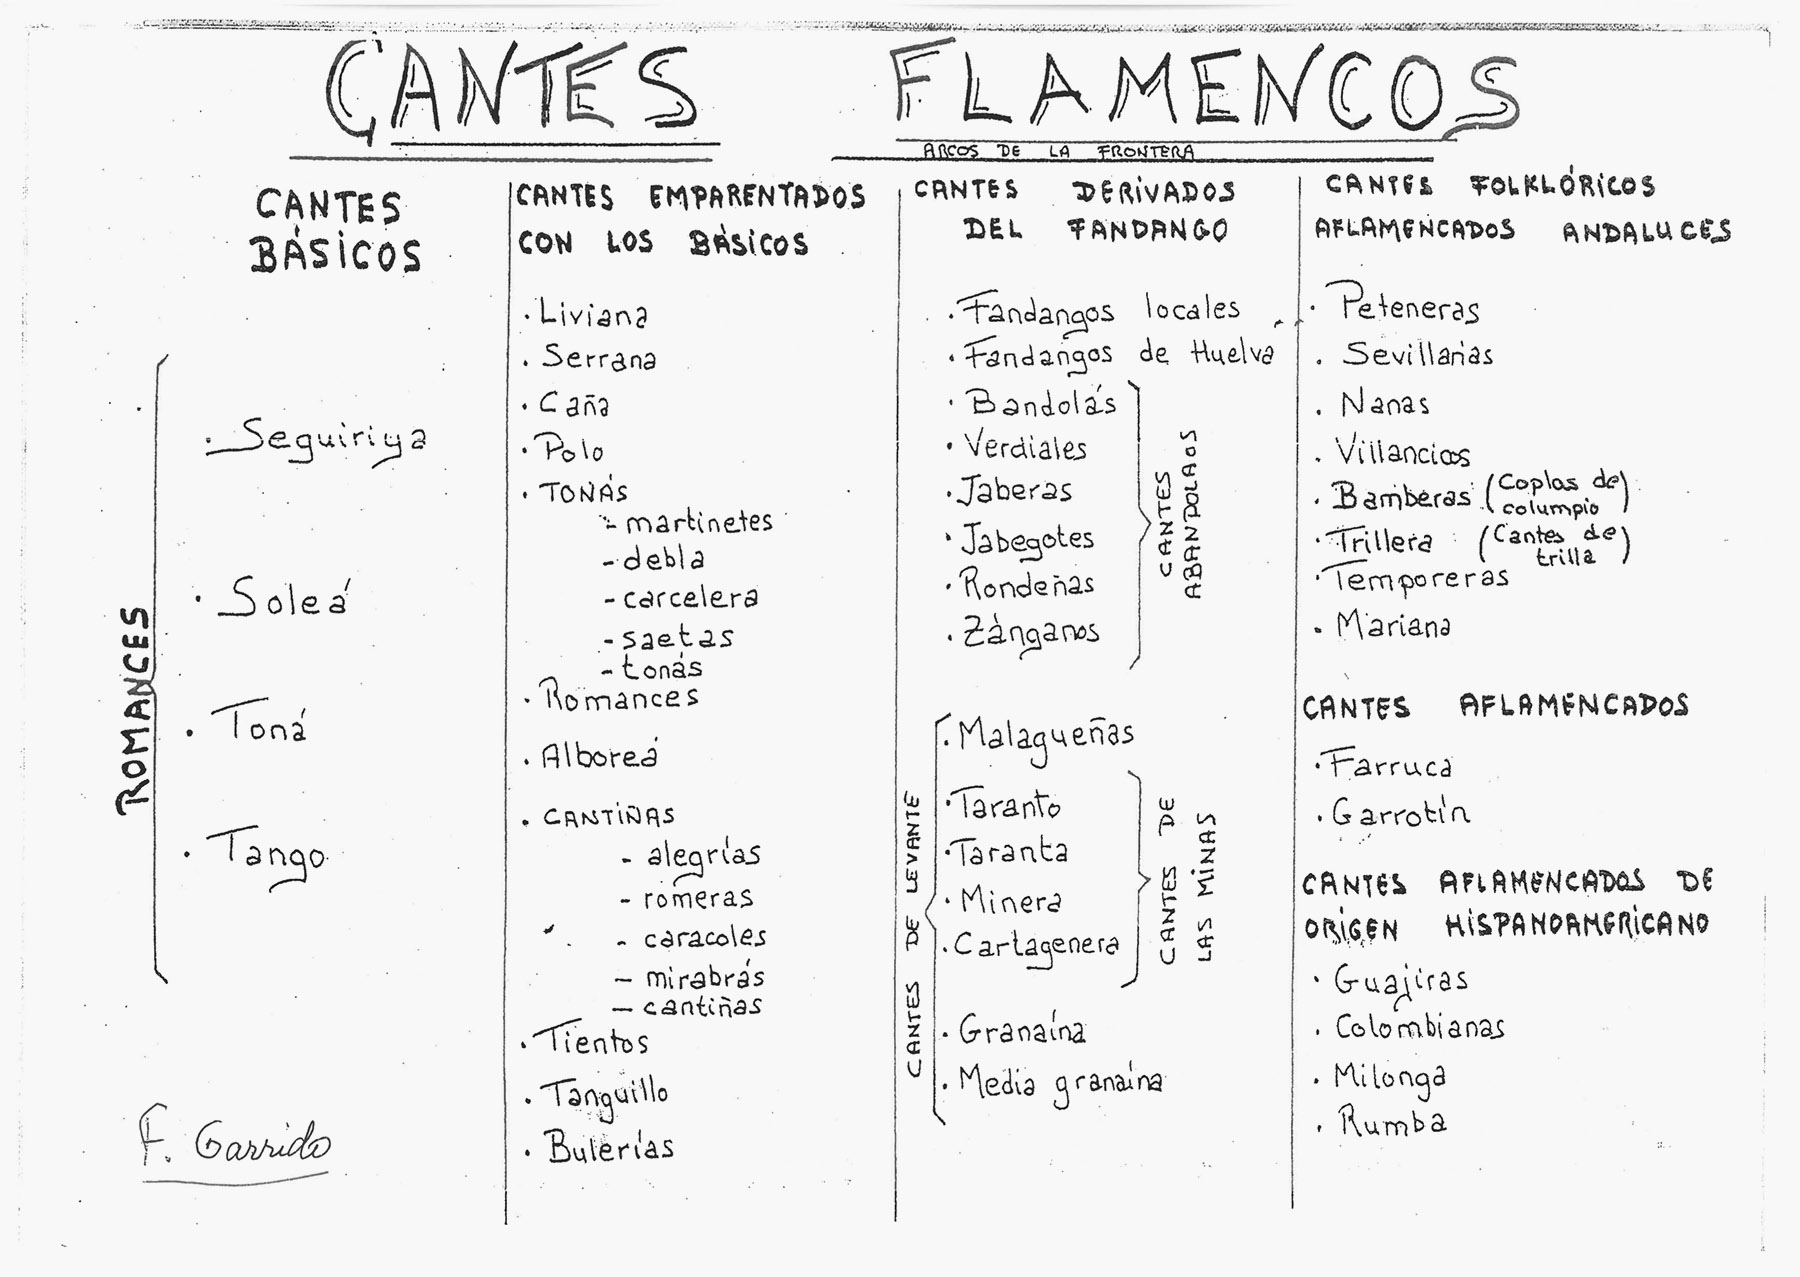 CANTES FLAMENCOS
ARCOS DE LA FRONTERA
CANTES
BÁSICOS
ROMANCES
· Seguiriya
· Soleá
· Toná
· Tango
F. Garrido
CANTES EMPARENTADOS
CON LOS BÁSICOS
· Liviana
· Serrana
· Caña
· Polo
· TONÁS
- martinetes
- debla
- carcelera
- saetas
- tonás
· Romances
· Alboreá
· CANTIÑAS
- alegrías
- romeras
- caracoles
- mirabrás
- cantiñas
· Tientos
· Tanguillo
· Bulerías
CANTES DERIVADOS
DEL FANDANGO
· Fandangos locales
· Fandangos de Huelva
· Bandolás
· Verdiales
· Jaberas
· Jabegotes
· Rondeñas
· Zánganos
CANTES
ABANDOLAOS
CANTES DE LEVANTE
· Malagueñas
· Taranto
· Taranta
· Minera
· Cartagenera
CANTES DE
LAS MINAS
· Granaína
· Media granaína
CANTES FOLKLÓRICOS
AFLAMENCADOS ANDALUCES
· Peteneras
· Sevillanas
· Nanas
· Villancicos
· Bamberas (Coplas de
columpio)
· Trillera (Cantes de
trilla)
· Temporeras
· Mariana
CANTES AFLAMENCADOS
· Farruca
· Garrotín
CANTES AFLAMENCADOS DE
ORIGEN HISPANOAMERICANO
· Guajiras
· Colombianas
· Milonga
· Rumba